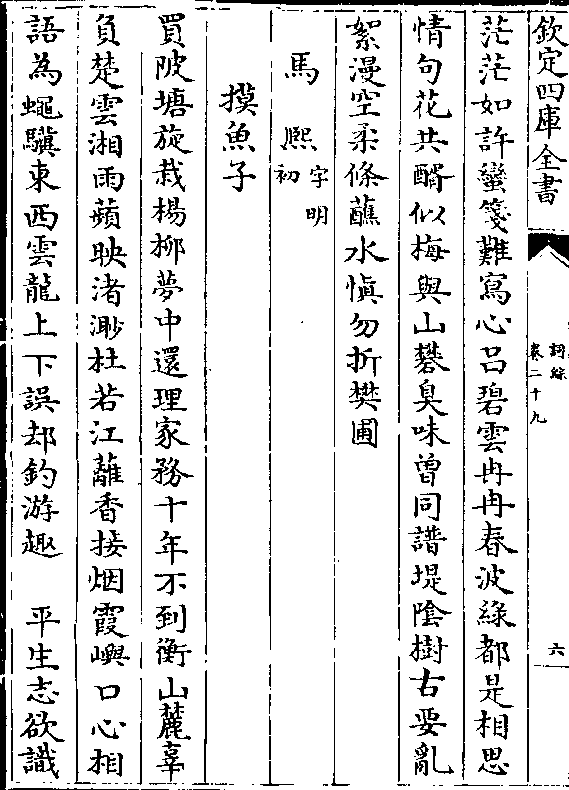 欽定四庫全書
詞綜
卷二十九
六
茫茫如許蠻箋難寫心吕碧雲冉冉春波綠都是相思
情句花共醑似梅與山礬臭味曾同譜堤陰樹右要亂
絮漫空柔條蘸水愼勿折樊圃
馬熈
字明
初
摸魚子
買陂塘旋栽楊柳夢中還理家務十年不到衡山麓辜
負楚雲湘雨蘋映渚渺杜若江蘺香接烟霞嶼口心相
語為蠅驥東西雲龍上下誤却釣游趣　平生志欲識